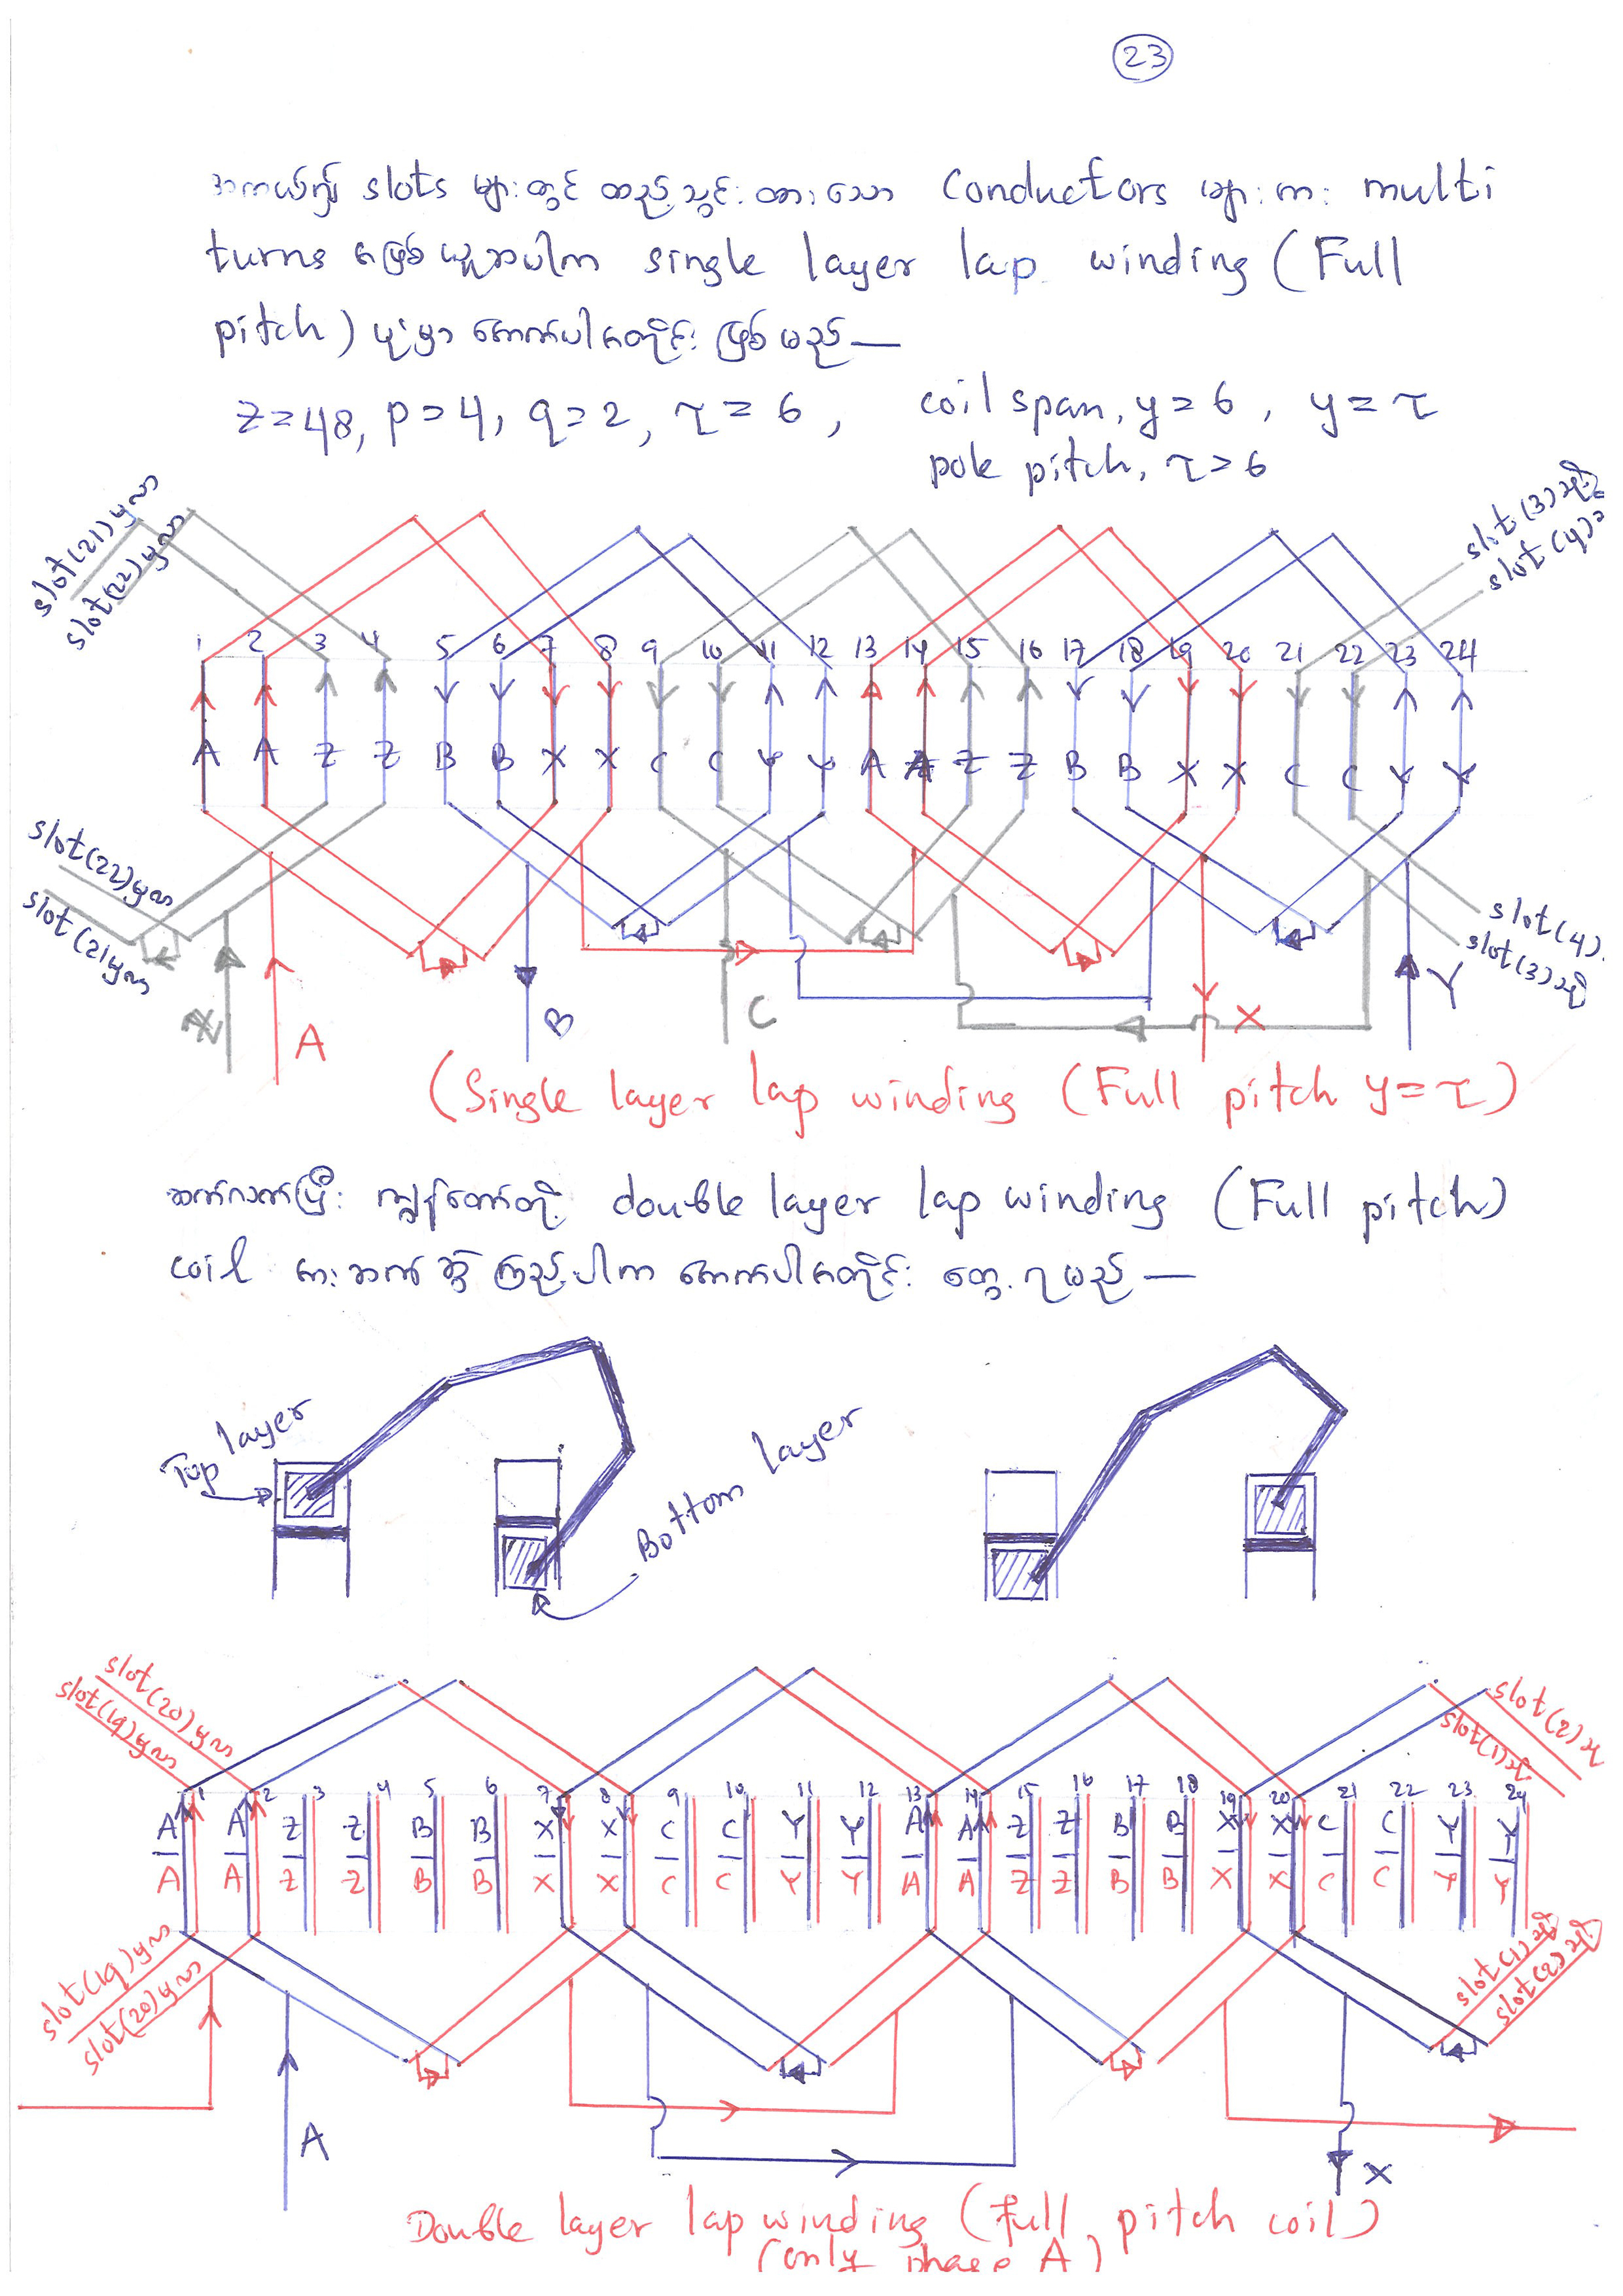 23
အကယ်၍ slots များတွင် ထည့်သွင်းထားသော conductors များက multi
turns ဖြစ်မယ်ဆိုပါက single layer lap winding (Full
pitch) ပုံမှာ အောက်ပါအတိုင်း ဖြစ်မည် —
Z=48, P=4, q=2, τ=6, coil span, y=6, y=τ
pole pitch, τ=6
slot(21)မှလာ
slot(22)မှလာ
slot(3)သို့
slot(4)
1 2 3 4 5 6 7 8 9 10 11 12 13 14 15 16 17 18 19 20 21 22 23 24
A A Z Z B B X X C C Y Y A A Z Z B B X X C C Y Y
slot(22)မှလာ
slot(21)မှလာ
slot(4)
slot(3)သို့
Z A B C X Y
(Single layer lap winding (Full pitch y=τ)
ဆက်လက်ပြီး ကျွန်တော်တို့ double layer lap winding (Full pitch)
coil အားဆက်ဆွဲကြည့်ပါက အောက်ပါအတိုင်း တွေ့ရမည် —
Top layer
Bottom layer
slot(20)မှလာ
slot(19)မှလာ
slot(2)
slot(1)သို့
1 2 3 4 5 6 7 8 9 10 11 12 13 14 15 16 17 18 19 20 21 22 23 24
A A Z Z B B X X C C Y Y A A Z Z B B X X C C Y Y
A A Z Z B B X X C C Y Y A A Z Z B B X X C C Y Y
slot(19)မှလာ
slot(20)မှလာ
slot(1)သို့
slot(2)သို့
A X
Double layer lap winding (full pitch coil)
(only phase A)